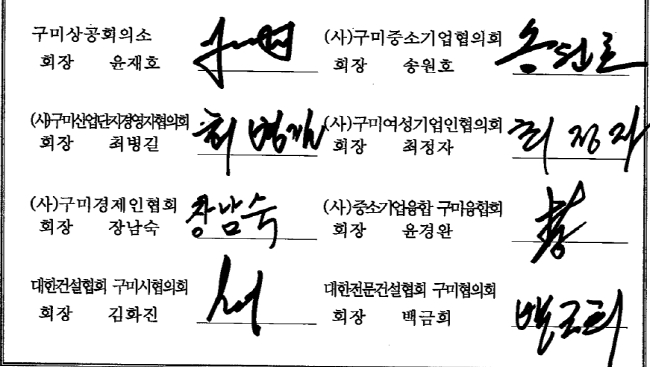 구미상공회의소
회장 윤재호
(사)구미중소기업협의회
회장 송원호
(사)구미산업단지경영자협의회
회장 최병길
최병길
(사)구미여성기업인협의회
회장 최정자
최정자
(사)구미경제인협회
회장 장남숙
장남숙
(사)중소기업융합 구미융합회
회장 윤경완
대한건설협회 구미시협의회
회장 김화진
대한전문건설협회 구미협의회
회장 백금희
백금희